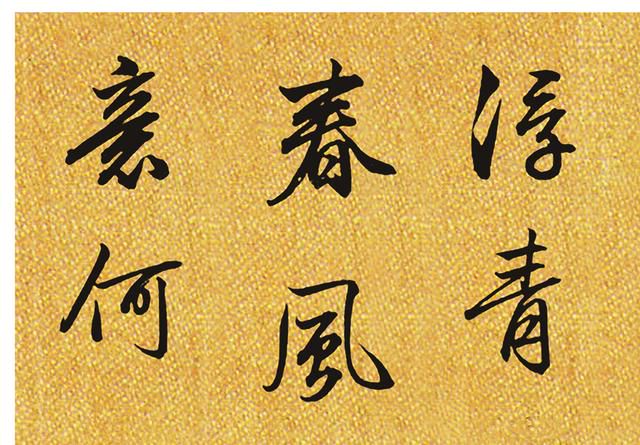 浮青
春風
意何